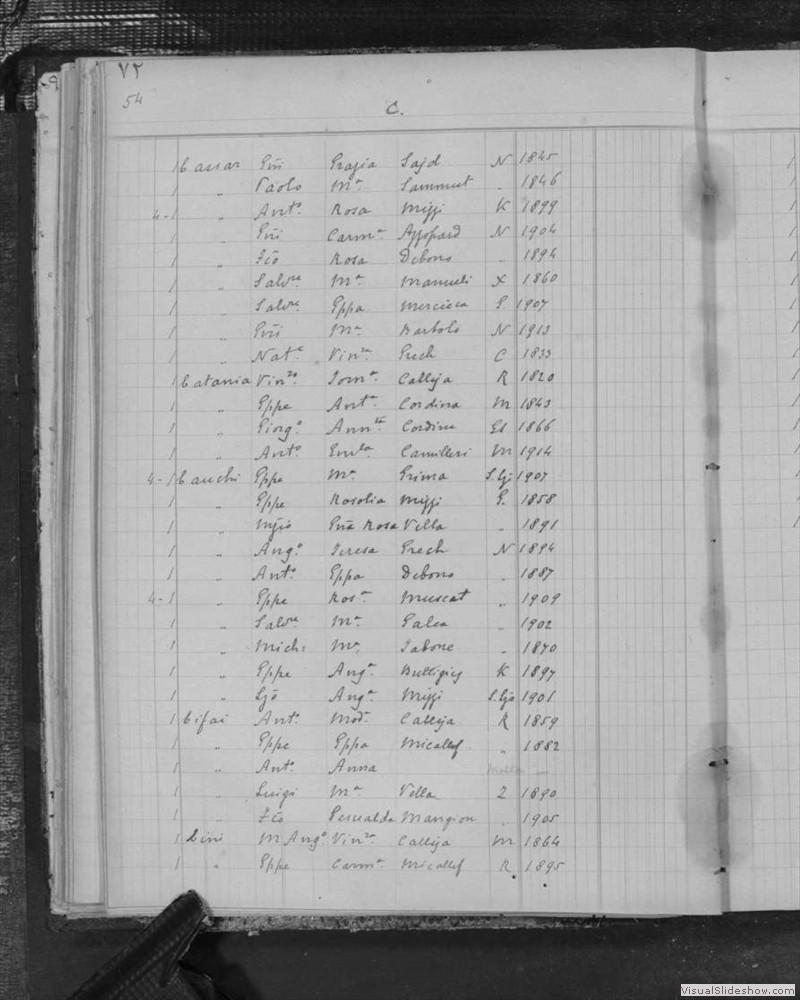 ٧٢
54
C.
1 Cassar Gui Grazia Sajd N 1845
1 " Paolo Ma Sammut " 1846
4-1 " Anto Rosa Mizzi K 1899
1 " Gui Carma Azzopard N 1904
1 " Fco Rosa Debono " 1894
1 " Salvre Ma Mamueli X 1860
1 " Salvre Gppa Mercieca G. 1907
1 " Gui Ma Bartolo N 1913
1 " Nate Vinza Grech C 1833
1 Catania Vinzo Toma Calleja R 1820
1 " Gppe Anta Cordina M 1843
1 " Giorgo Cordina 1866
1 " Anto Camilleri M 1914
4-1 Cauchi Gppe Ma Grima 1907
1 " Gppe Rosolia Mizzi G. 1858
1 " Rosa Vella " 1891
1 " Ango Teresa Grech N 1894
1 " Anto Gppa Debono " 1887
4-1 " Gppe Rosa Muscat " 1909
1 " Salvre Ma Galea " 1902
1 " Mich: Ma Tabone " 1870
1 " Gppe Anga Buttigieg K 1897
1 " Anga Mizzi 1901
1 Cifai Anto Moda Calleja R 1859
1 " Gppe Gppa Micallef " 1882
1 " Anto Anna Malta
1 " Luigi Ma Vella Z 1890
1 " Fco Mangion " 1905
1 Cini M. Ango Vinza Calleja M 1864
1 " Gppe Carma Micallef R. 1895
VisualSlideshow.com